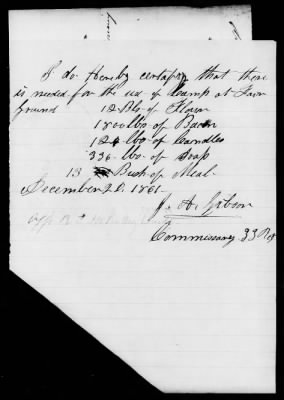 I do Hereby certafy that there
is needed for the use of Camp at Fair
Ground 12 Bls of Flour
1800 lbs of Bacon
124 lbs of Candles
336 lbs of Soap
13 Bush of Meal
December 20 1861
J. A. Gibson
Commissary 33 Reg